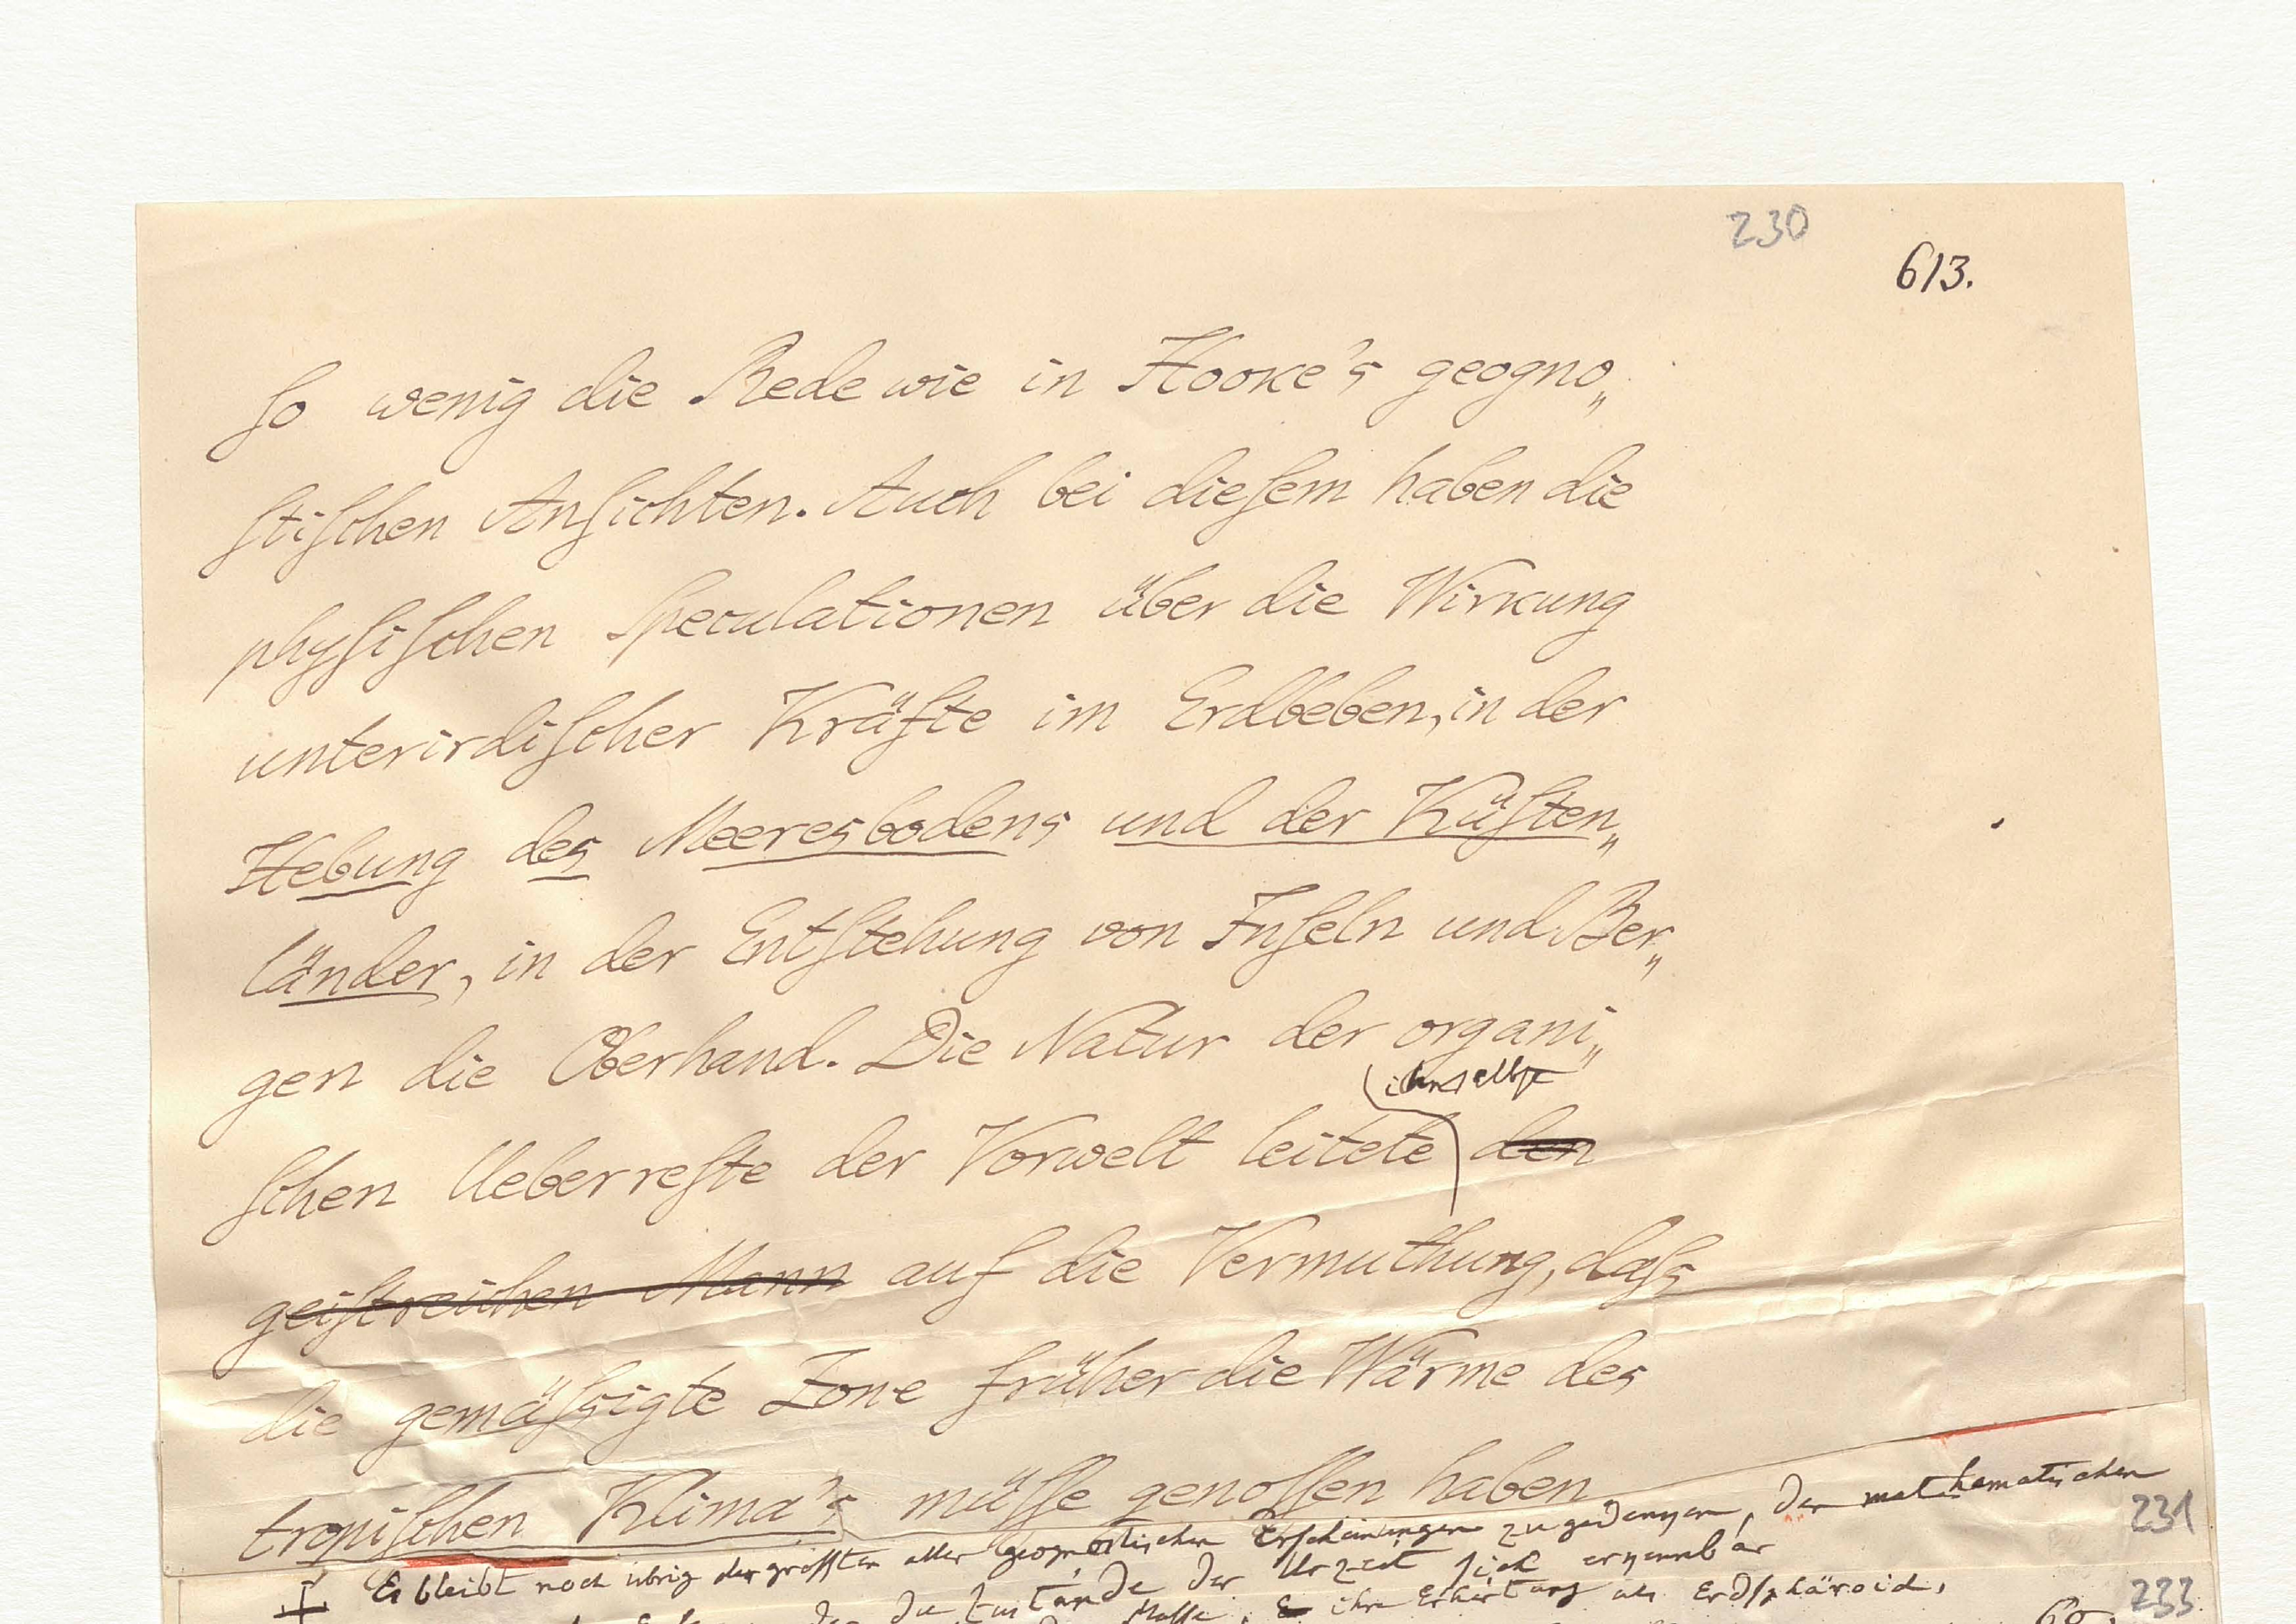 230
613.
so wenig die Rede wie in Hooke's geogno„
stischen Ansichten. Auch bei diesem haben die
physischen Speculationen über die Wirkung
unterirdischer Kräfte im Erdbeben, in der
Hebung des Meeresbodens und der Küsten„
länder, in der Entstehung von Inseln und Ber„
gen die Oberhand. Die Natur der organi„
ihn selbst
schen Ueberreste der Vorwelt leitete den
geistreichen Mann auf die Vermuthung, dass
die gemässigte Zone früher die Wärme des
tropischen Klima's müsse genossen haben
Es bleibt noch übrig der grössten aller geognostischen Erscheinungen zu gedenken, der mathematischen
231
der Zustände der Urzeit sich erkennbar
Masse, ihre Erhärtung als Erdsphäroid,
233
60.